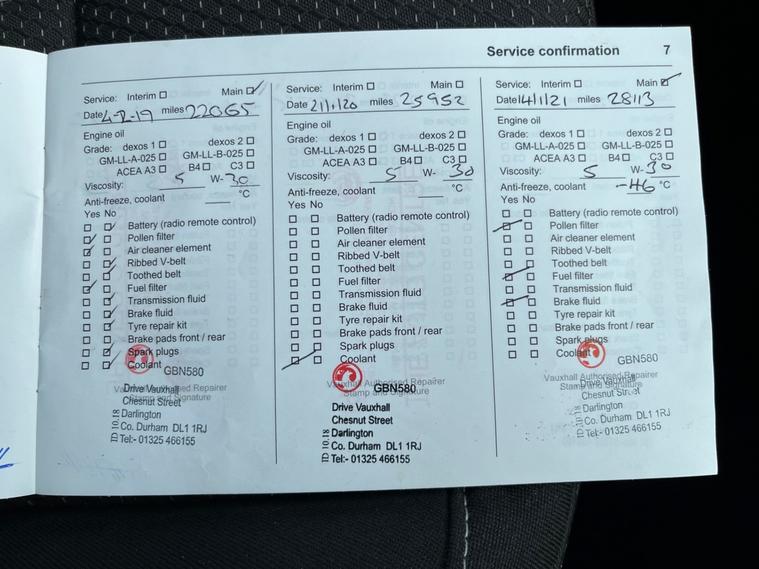 Service confirmation 7
Service: Interim Main
Date 4-2-19 miles 22065
Engine oil
Grade: dexos 1 dexos 2
GM-LL-A-025 GM-LL-B-025
ACEA A3 B4 C3
Viscosity: 5 W-30
Anti-freeze, coolant °C
Yes No
Battery (radio remote control)
Pollen filter
Air cleaner element
Ribbed V-belt
Toothed belt
Fuel filter
Transmission fluid
Brake fluid
Tyre repair kit
Brake pads front / rear
Spark plugs
Coolant
GBN580
Vauxhall Authorised Repairer
Stamp and Signature
Drive Vauxhall
Chesnut Street
Darlington
Co. Durham DL1 1RJ
Tel:- 01325 466155
Service: Interim Main
Date 21/1/20 miles 25952
Engine oil
Grade: dexos 1 dexos 2
GM-LL-A-025 GM-LL-B-025
ACEA A3 B4 C3
Viscosity: 5 W- 30
Anti-freeze, coolant °C
Yes No
Battery (radio remote control)
Pollen filter
Air cleaner element
Ribbed V-belt
Toothed belt
Fuel filter
Transmission fluid
Brake fluid
Tyre repair kit
Brake pads front / rear
Spark plugs
Coolant
Vauxhall Authorised Repairer
Stamp and Signature
GBN580
Drive Vauxhall
Chesnut Street
Darlington
Co. Durham DL1 1RJ
Tel:- 01325 466155
Service: Interim Main
Date 14/1/21 miles 28113
Engine oil
Grade: dexos 1 dexos 2
GM-LL-A-025 GM-LL-B-025
ACEA A3 B4 C3
Viscosity: 5 W-30
Anti-freeze, coolant -46 °C
Yes No
Battery (radio remote control)
Pollen filter
Air cleaner element
Ribbed V-belt
Toothed belt
Fuel filter
Transmission fluid
Brake fluid
Tyre repair kit
Brake pads front / rear
Spark plugs
Coolant
GBN580
Vauxhall Authorised Repairer
Stamp and Signature
Drive Vauxhall
Chesnut Street
Darlington
Co. Durham DL1 1RJ
Tel:- 01325 466155